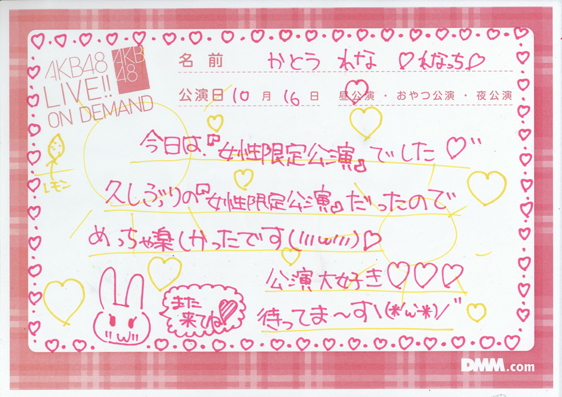 AKB48
LIVE!!
ON DEMAND
AKB
48
名前 かとう れな ♡れなっち♡
公演日 10月 16日 昼公演・おやつ公演・夜公演
今日は、『女性限定公演』でした♡"
レモン
久しぶりの『女性限定公演』だったので
めっちゃ楽しかったです(///ω///)♡
公演大好き♡♡♡
また
来てね♡
待ってま〜す\(*'ω'*)/"
DMM.com